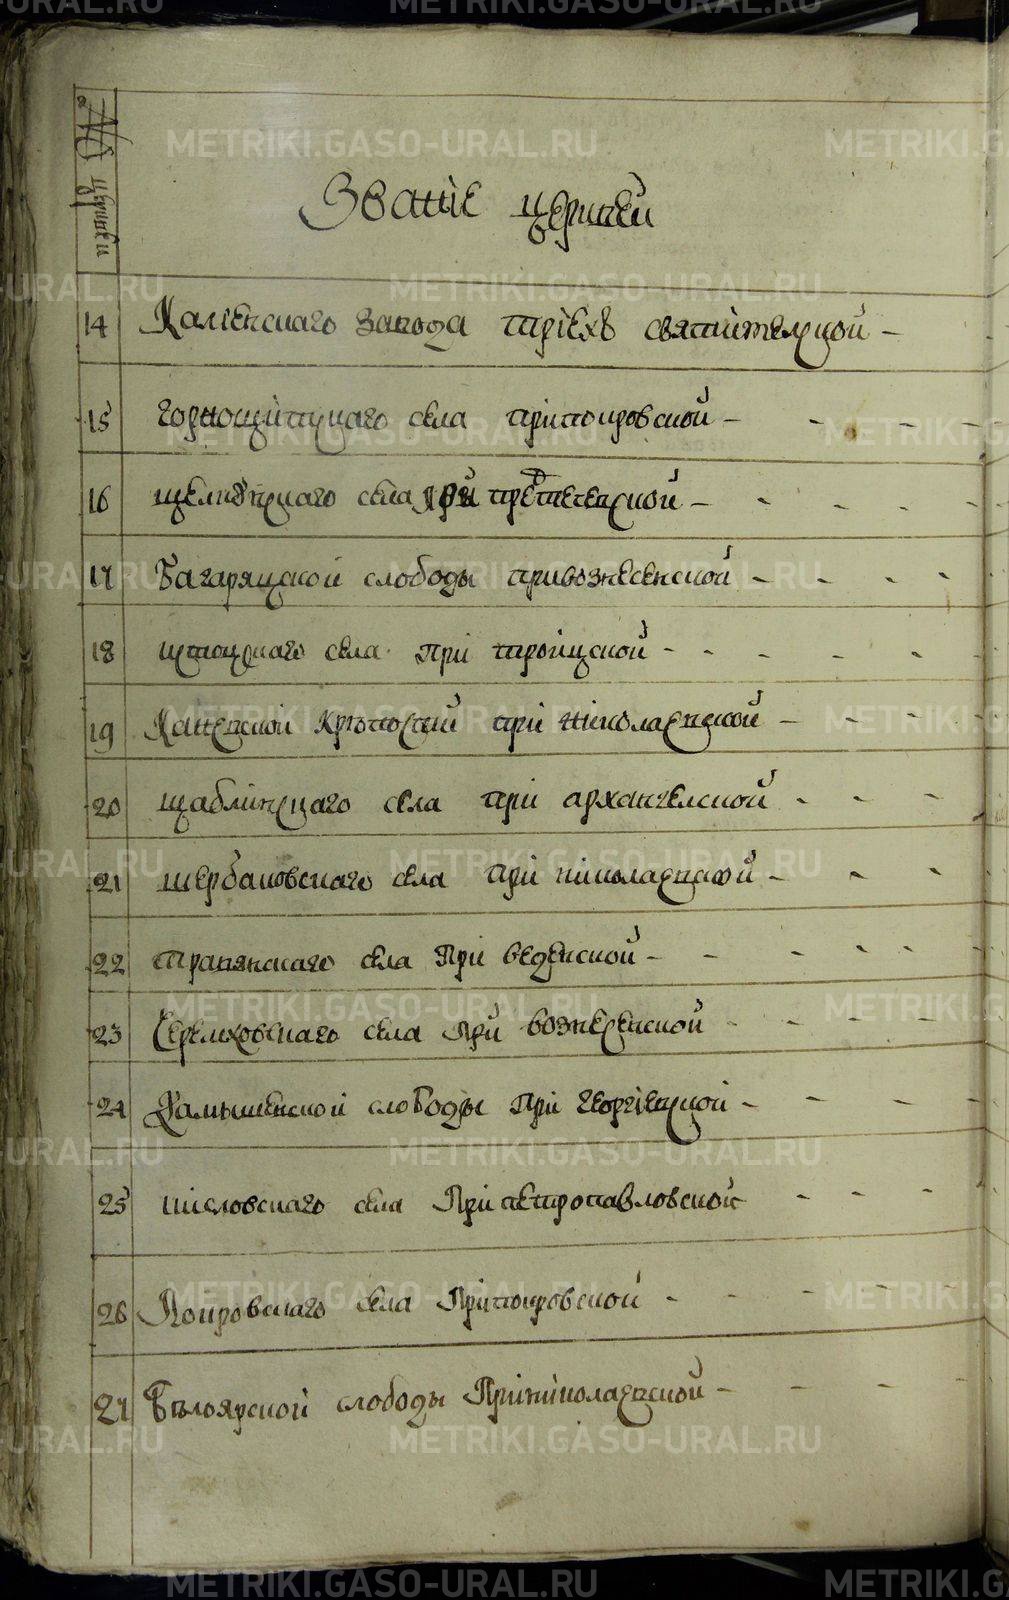 № церквей
Званіе церквей
14 Каменскаго завода трiехъ святительской
15 горнощитцкаго села при покровской
16 щелкунскаго села при
17 Багаряцкой слободы при вознесенской
18 села при троицкой
19 крѣпости при николаевской
20 села при архангелской
21 щербаковскаго села при николаевской
22 травянскаго села При веденской
23 Черемховскаго села При вознесенской
24 Камышенской слободы При георгіевской
25 кисловскаго села При петропавловской
26 Покровскаго села При покровской
27 Бѣлоярской слободы При николаевской
METRIKI.GASO-URAL.RU